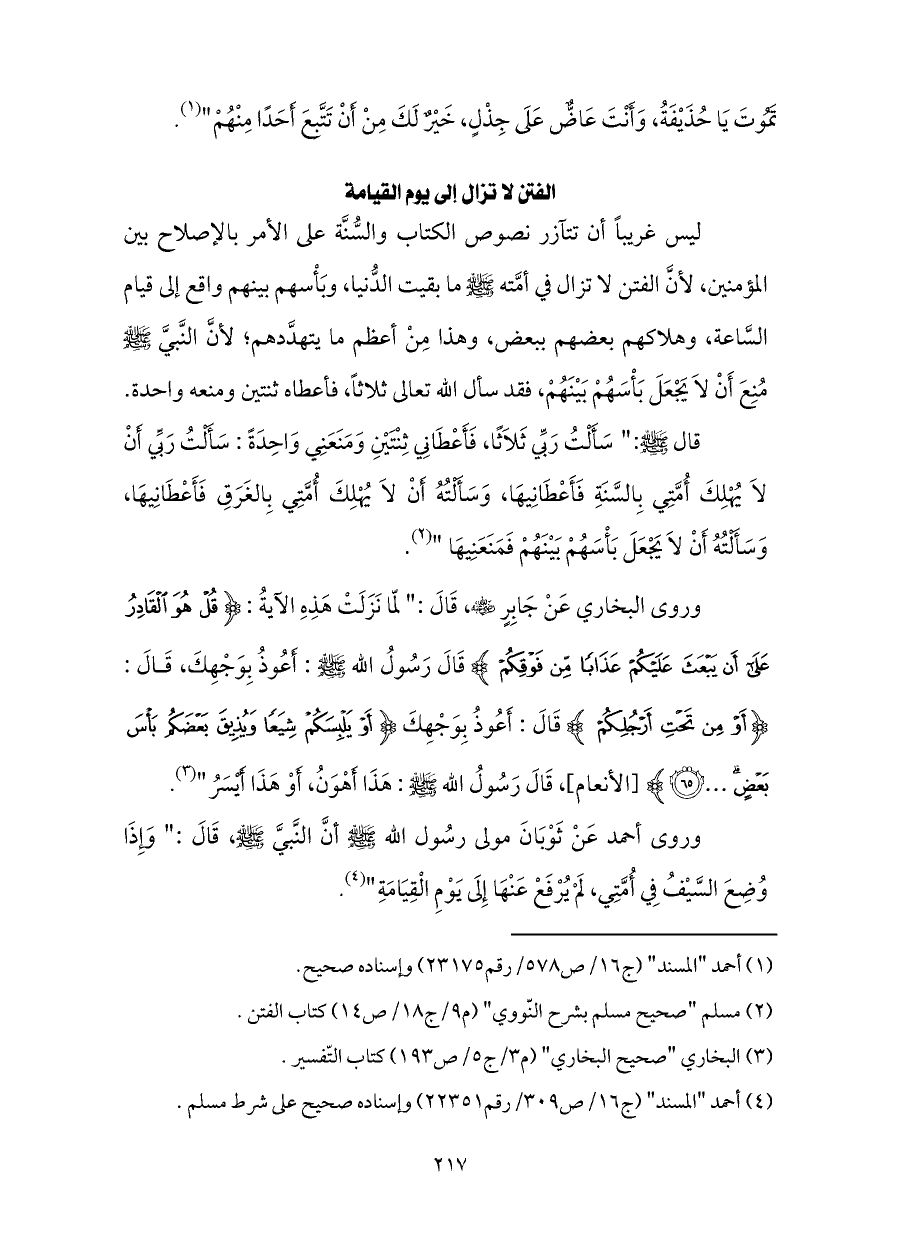 تَمُوتَ يَا حُذَيْفَةُ، وَأَنْتَ عَاضٌّ عَلَى جِذْلٍ، خَيْرٌ لَكَ مِنْ أَنْ تَتَّبِعَ أَحَدًا مِنْهُمْ"(١).
الفتن لا تزال إلى يوم القيامة
ليس غريباً أن تتآزر نصوص الكتاب والسُّنَّة على الأمر بالإصلاح بين
المؤمنين، لأنَّ الفتن لا تزال في أمَّته ﷺ ما بقيت الدُّنيا، وبَأْسهم بينهم واقع إلى قيام
السَّاعة، وهلاكهم بعضهم ببعض، وهذا مِنْ أعظم ما يتهدَّدهم؛ لأنَّ النَّبيَّ ﷺ
مُنِعَ أَنْ لاَ يَجْعَلَ بَأْسَهُمْ بَيْنَهُمْ، فقد سأل الله تعالى ثلاثاً، فأعطاه ثنتين ومنعه واحدة.
قال ﷺ:" سَأَلْتُ رَبِّي ثَلاَثًا، فَأَعْطَانِي ثِنْتَيْنِ وَمَنَعَنِي وَاحِدَةً : سَأَلْتُ رَبِّي أَنْ
لاَ يُهْلِكَ أُمَّتِي بِالسَّنَةِ فَأَعْطَانِيهَا، وَسَأَلْتُهُ أَنْ لاَ يُهْلِكَ أُمَّتِي بِالغَرَقِ فَأَعْطَانِيهَا،
وَسَأَلْتُهُ أَنْ لاَ يَجْعَلَ بَأْسَهُمْ بَيْنَهُمْ فَمَنَعَنِيهَا "(٢).
وروى البخاري عَنْ جَابِرٍ ﵁، قَالَ :" لمّا نَزَلَتْ هَذِهِ الآيةُ : ﴿ قُلْ هُوَ ٱلْقَادِرُ
عَلَىٰٓ أَن يَبْعَثَ عَلَيْكُمْ عَذَابًا مِّن فَوْقِكُمْ ﴾ قَالَ رَسُولُ الله ﷺ : أَعُوذُ بِوَجْهِكَ، قَـالَ :
﴿ أَوْ مِن تَحْتِ أَرْجُلِكُمْ ﴾ قَالَ : أَعُوذُ بِوَجْهِكَ ﴿ أَوْ يَلْبِسَكُمْ شِيَعًا وَيُذِيقَ بَعْضَكُم بَأْسَ
بَعْضٍ ۗ ...٦٥ ﴾ [الأنعام]، قَالَ رَسُولُ الله ﷺ : هَذَا أَهْوَنُ، أَوْ هَذَا أَيْسَرُ "(٣).
وروى أحمد عَنْ ثَوْبَانَ مولى رسُول الله ﷺ أنَّ النَّبيَّ ﷺ، قَالَ :" وَإِذَا
وُضِعَ السَّيْفُ فِي أُمَّتِي، لَمْ يُرْفَعْ عَنْهَا إِلَى يَوْمِ الْقِيَامَةِ"(٤).
(١) أحمد "المسند" (ج١٦/ ص٥٧٨/ رقم٢٣١٧٥) وإسناده صحيح.
(٢) مسلم "صحيح مسلم بشرح النّووي" (م٩/ ج١٨/ ص١٤) كتاب الفتن .
(٣) البخاري "صحيح البخاري" (م٣/ ج٥/ ص١٩٣) كتاب التّفسير .
(٤) أحمد "المسند" (ج١٦/ ص٣٠٩/ رقم٢٢٣٥١) وإسناده صحيح على شرط مسلم .
٢١٧